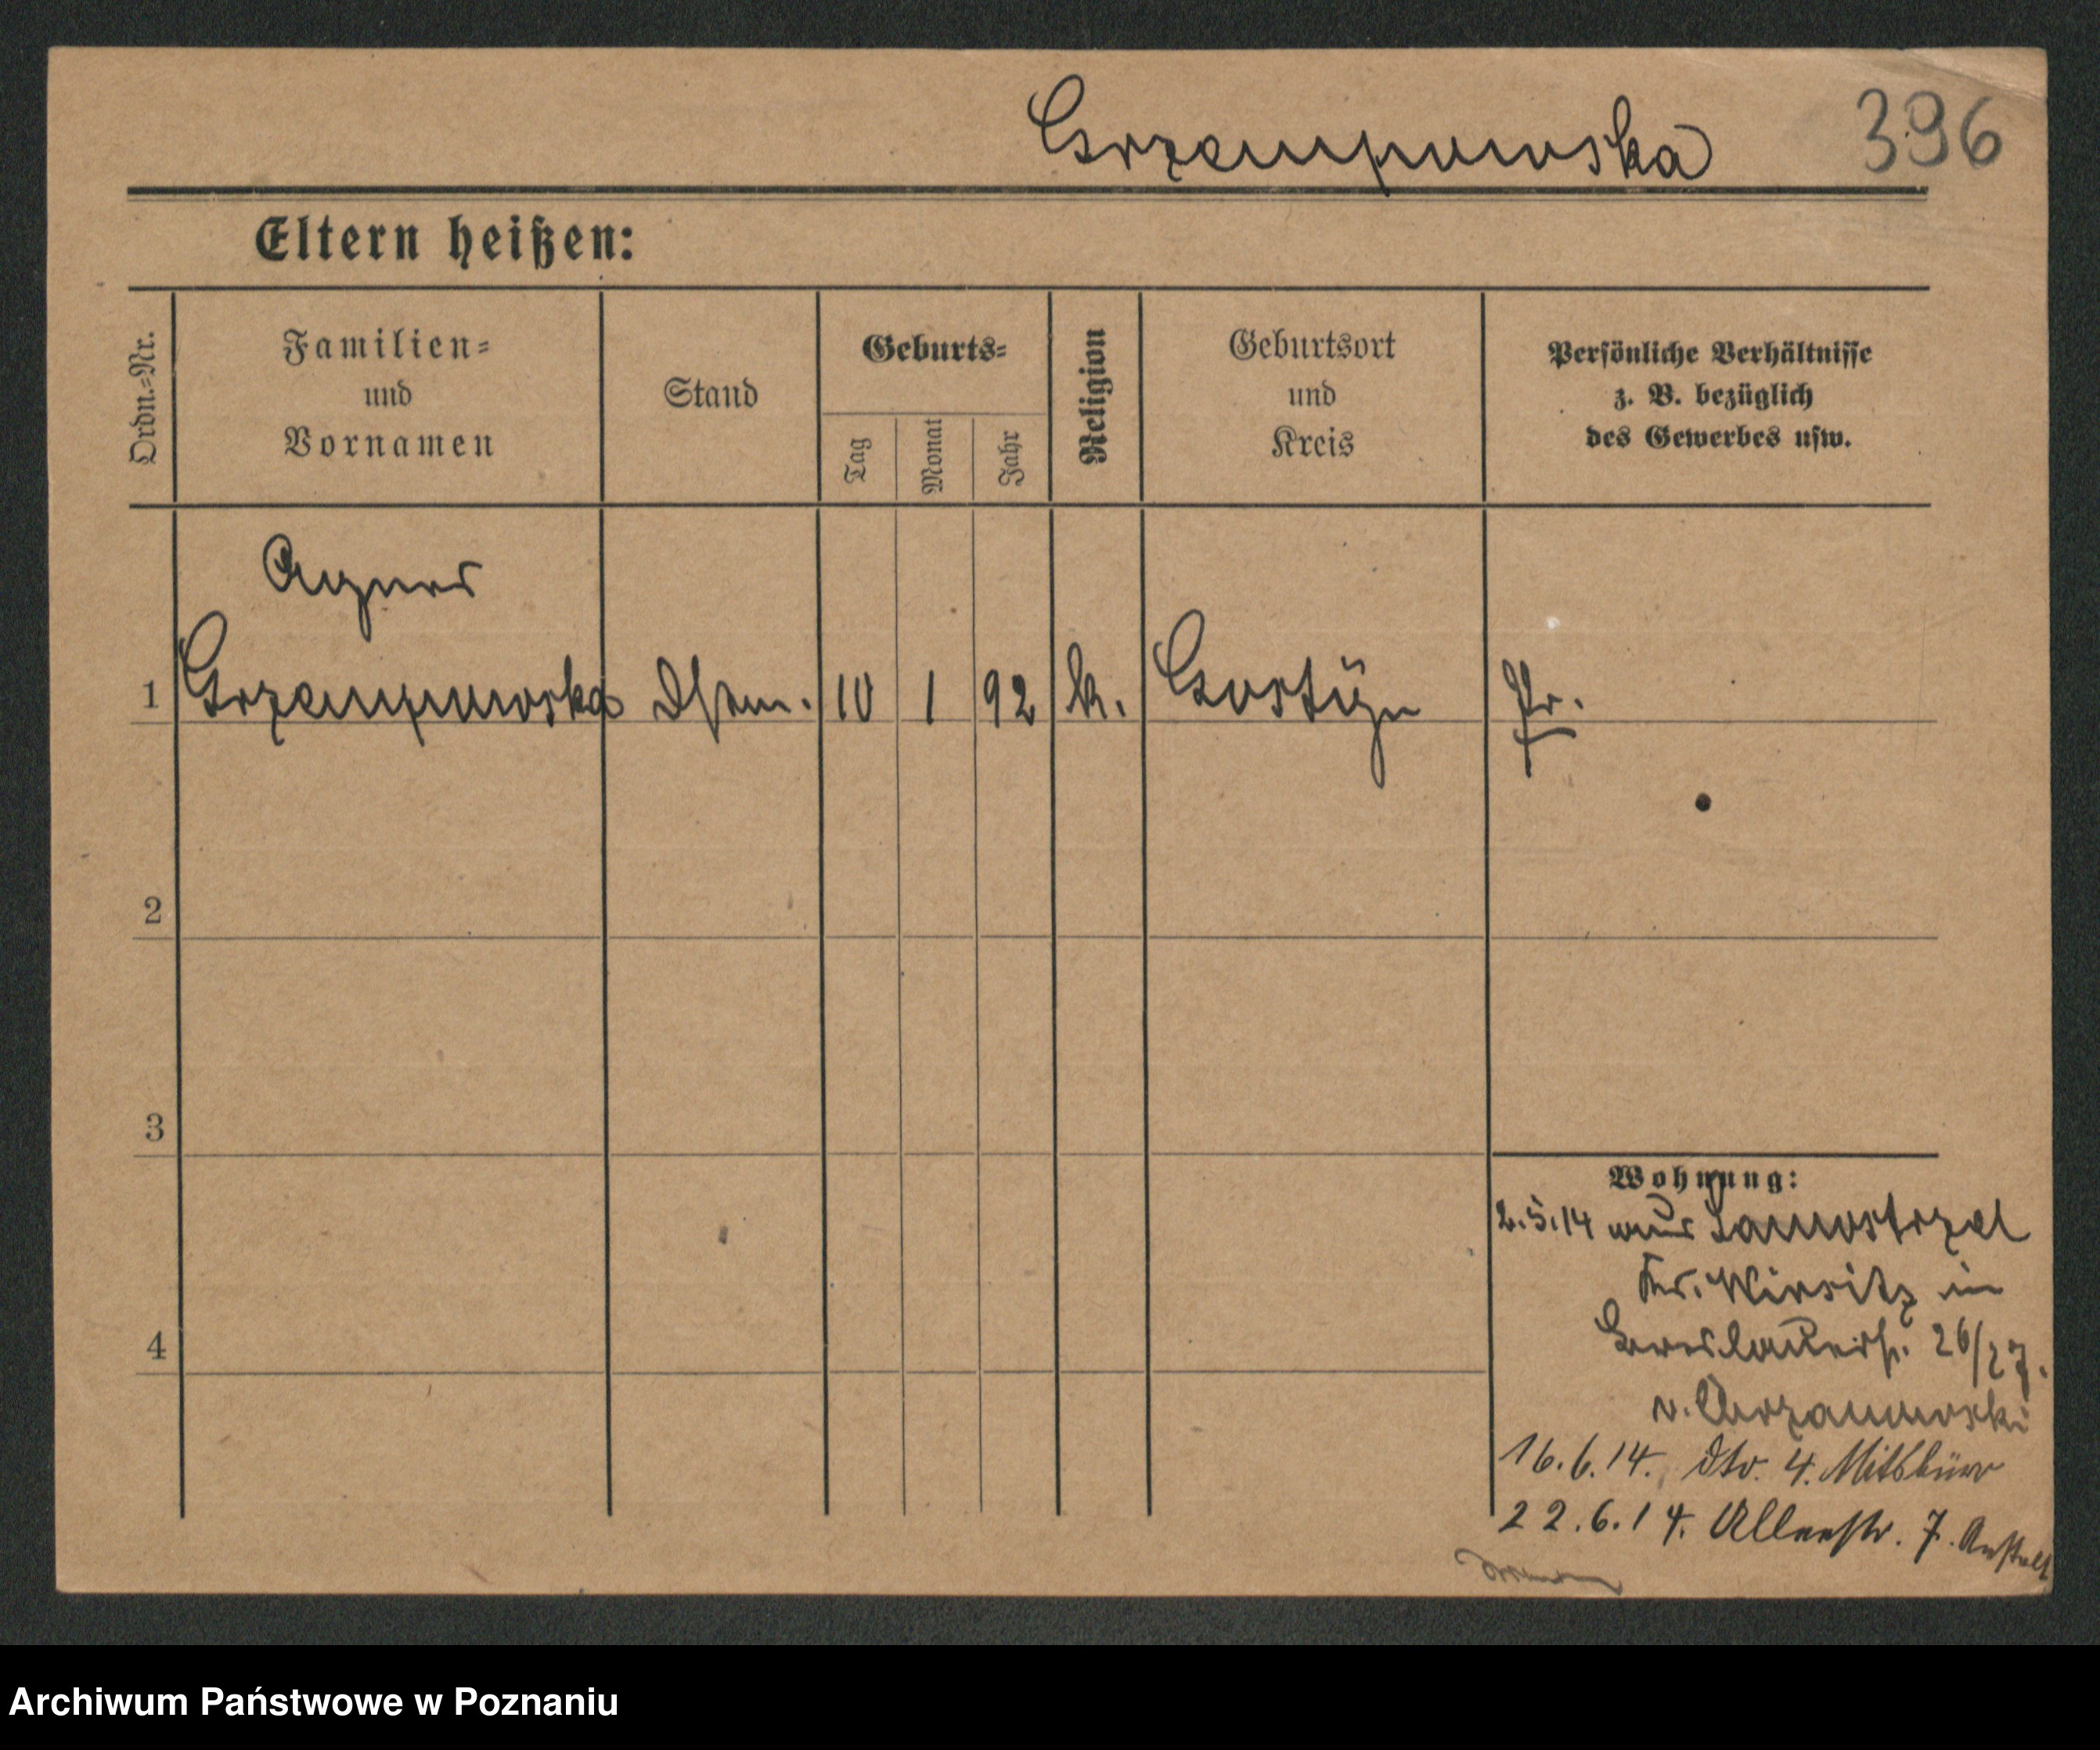 Grzempowska 396
Eltern heißen:
Ordn.-Nr.
Familien-
und
Vornamen
Stand
Geburts-
Tag
Monat
Jahr
Religion
Geburtsort
und
Kreis
Persönliche Verhältnisse
z. B. bezüglich
des Gewerbes usw.
Agnes
1 Grzempowska 10 1 92 k. Gostÿn Pr.
2
3
4
Wohnung:
2.5.14 aus Samostrzel
Kr. Wirsitz in
26/27.
v. Chrzanowski
16.6.14. 4.
22.6.14. 7. Anstalt
Archiwum Państwowe w Poznaniu